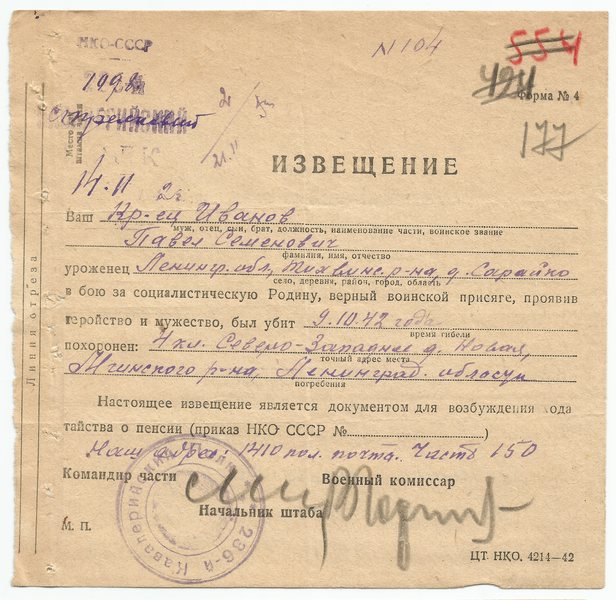 НКО-СССР
N 104
554
424
Форма № 4
199
Стрелковый
Место для штампа части
177
21.11
14.11 2г.
ИЗВЕЩЕНИЕ
Ваш Кр-ец Иванов
муж, отец, сын, брат, должность, наименование части, воинское звание
Павел Семенович
фамилия, имя, отчество
уроженец Ленингр. обл, Тихвинс. р-на, д. Сарайно
село, деревня, район, город. область
в бою за социалистическую Родину, верный воинской присяге, проявив
геройство и мужество, был убит 9.10.42 года
время гибели
похоронен: 1 кл. Северо-Западнее д. Новая,
точный адрес места
Мгинского р-на, Ленинград. области
погребения
Настоящее извещение является документом для возбуждения хода
тайства о пенсии (приказ НКО СССР №
)
Наш адрес: 1410 пол. почта. Часть 150
Командир части
Военный комиссар
Начальник штаба
М. П.
236-й Кавалерийский Полк
ЦТ. НКО. 4214—42
Линия отреза